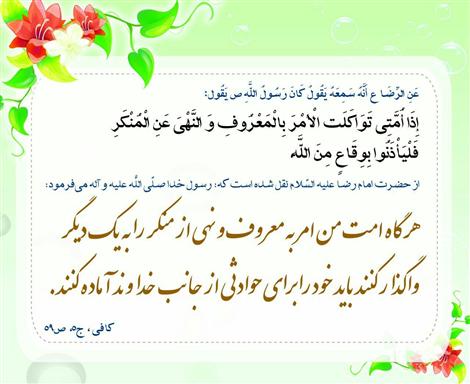 عَنِ الرِّضَا ع أَنَّهُ سَمِعَهُ يَقُولُ كَانَ رَسُولُ اللَّهِ ص يَقُولُ:
إِذَا أُمَّتِي تَوَاكَلَتِ الْأَمْرَ بِالْمَعْرُوفِ وَ النَّهْيَ عَنِ الْمُنْكَرِ
فَلْيَأْذَنُوا بِوِقَاعٍ مِنَ اللَّهِ
از حضرت امام رضا علیه السّلام نقل شده است که: رسول خدا صلّی الله علیه و آله می‌فرمود:
هرگاه امت من امر به معروف و نهی از منکر را به یک دیگر
واگذار کنند باید خود را برای حوادثی از جانب خداوند آماده کنند.
کافی، ج۵، ص۵۹